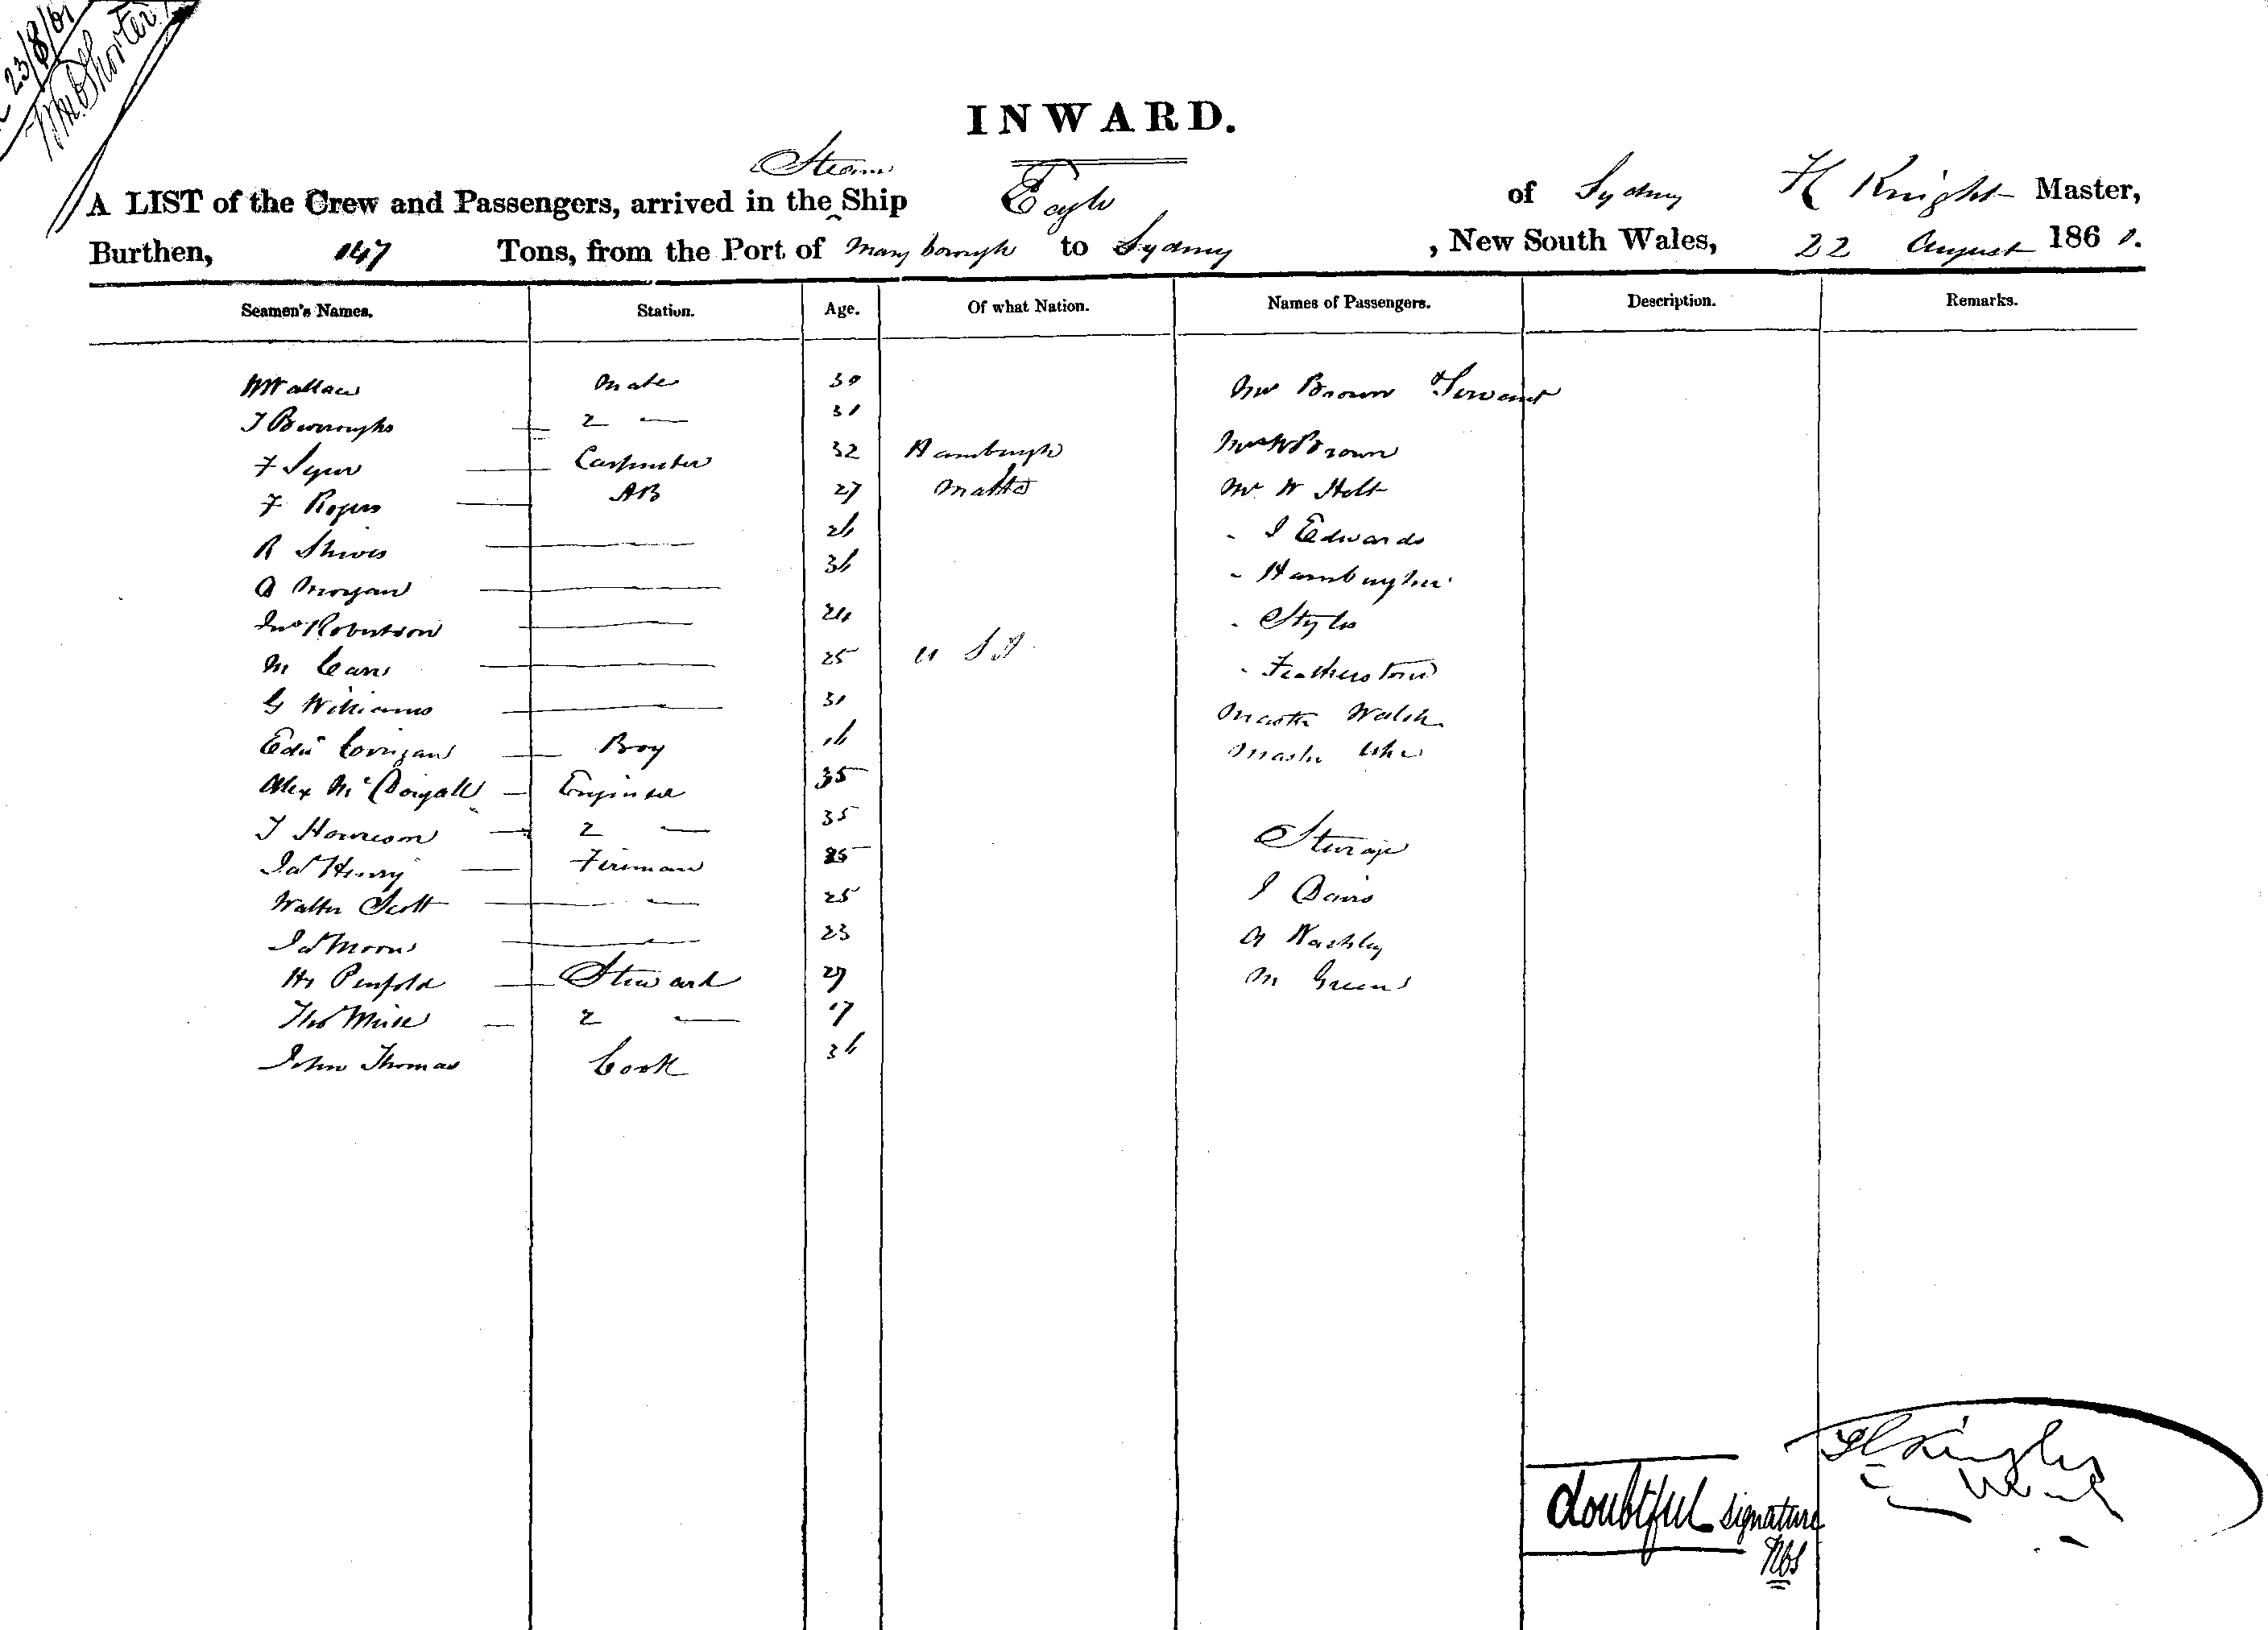 23/8/61
Wm Shorter
INWARD.
Steam
A LIST of the Crew and Passengers, arrived in the Ship Eagle of Sydney H Knight Master,
Burthen, 147 Tons, from the Port of Maryborough to Sydney , New South Wales, 22 August 1861.
Seamen's Names. Station. Age. Of what Nation. Names of Passengers. Description. Remarks.
W Wallace Mate 30 Mr Brown & Servant
T Burroughs 2 — 31
F Syer Carpenter 32 Hamburgh Mrs W Brown
F Rogers AB 27 Malta Mr W Holt
R Shives 26 - J Edwards
A Morgan 36 - Hamburgher
Jno Robertson 24 - Styles
M Carr 25 U S A - Featherstone
G Williams 31 Master Walsh
Edwd Corrigan Boy 16 Master
Alex McDougall Engineer 35
T Howieson 2 — 35 Steerage
Jas Henry Fireman 25
Walter Scott 25 J Davis
Jas Moore 23 A Washley
Hy Penfold Steward 27 M Green
Thos Muse 2 — 17
John Thomas Cook 36
H Knight
doubtful signature